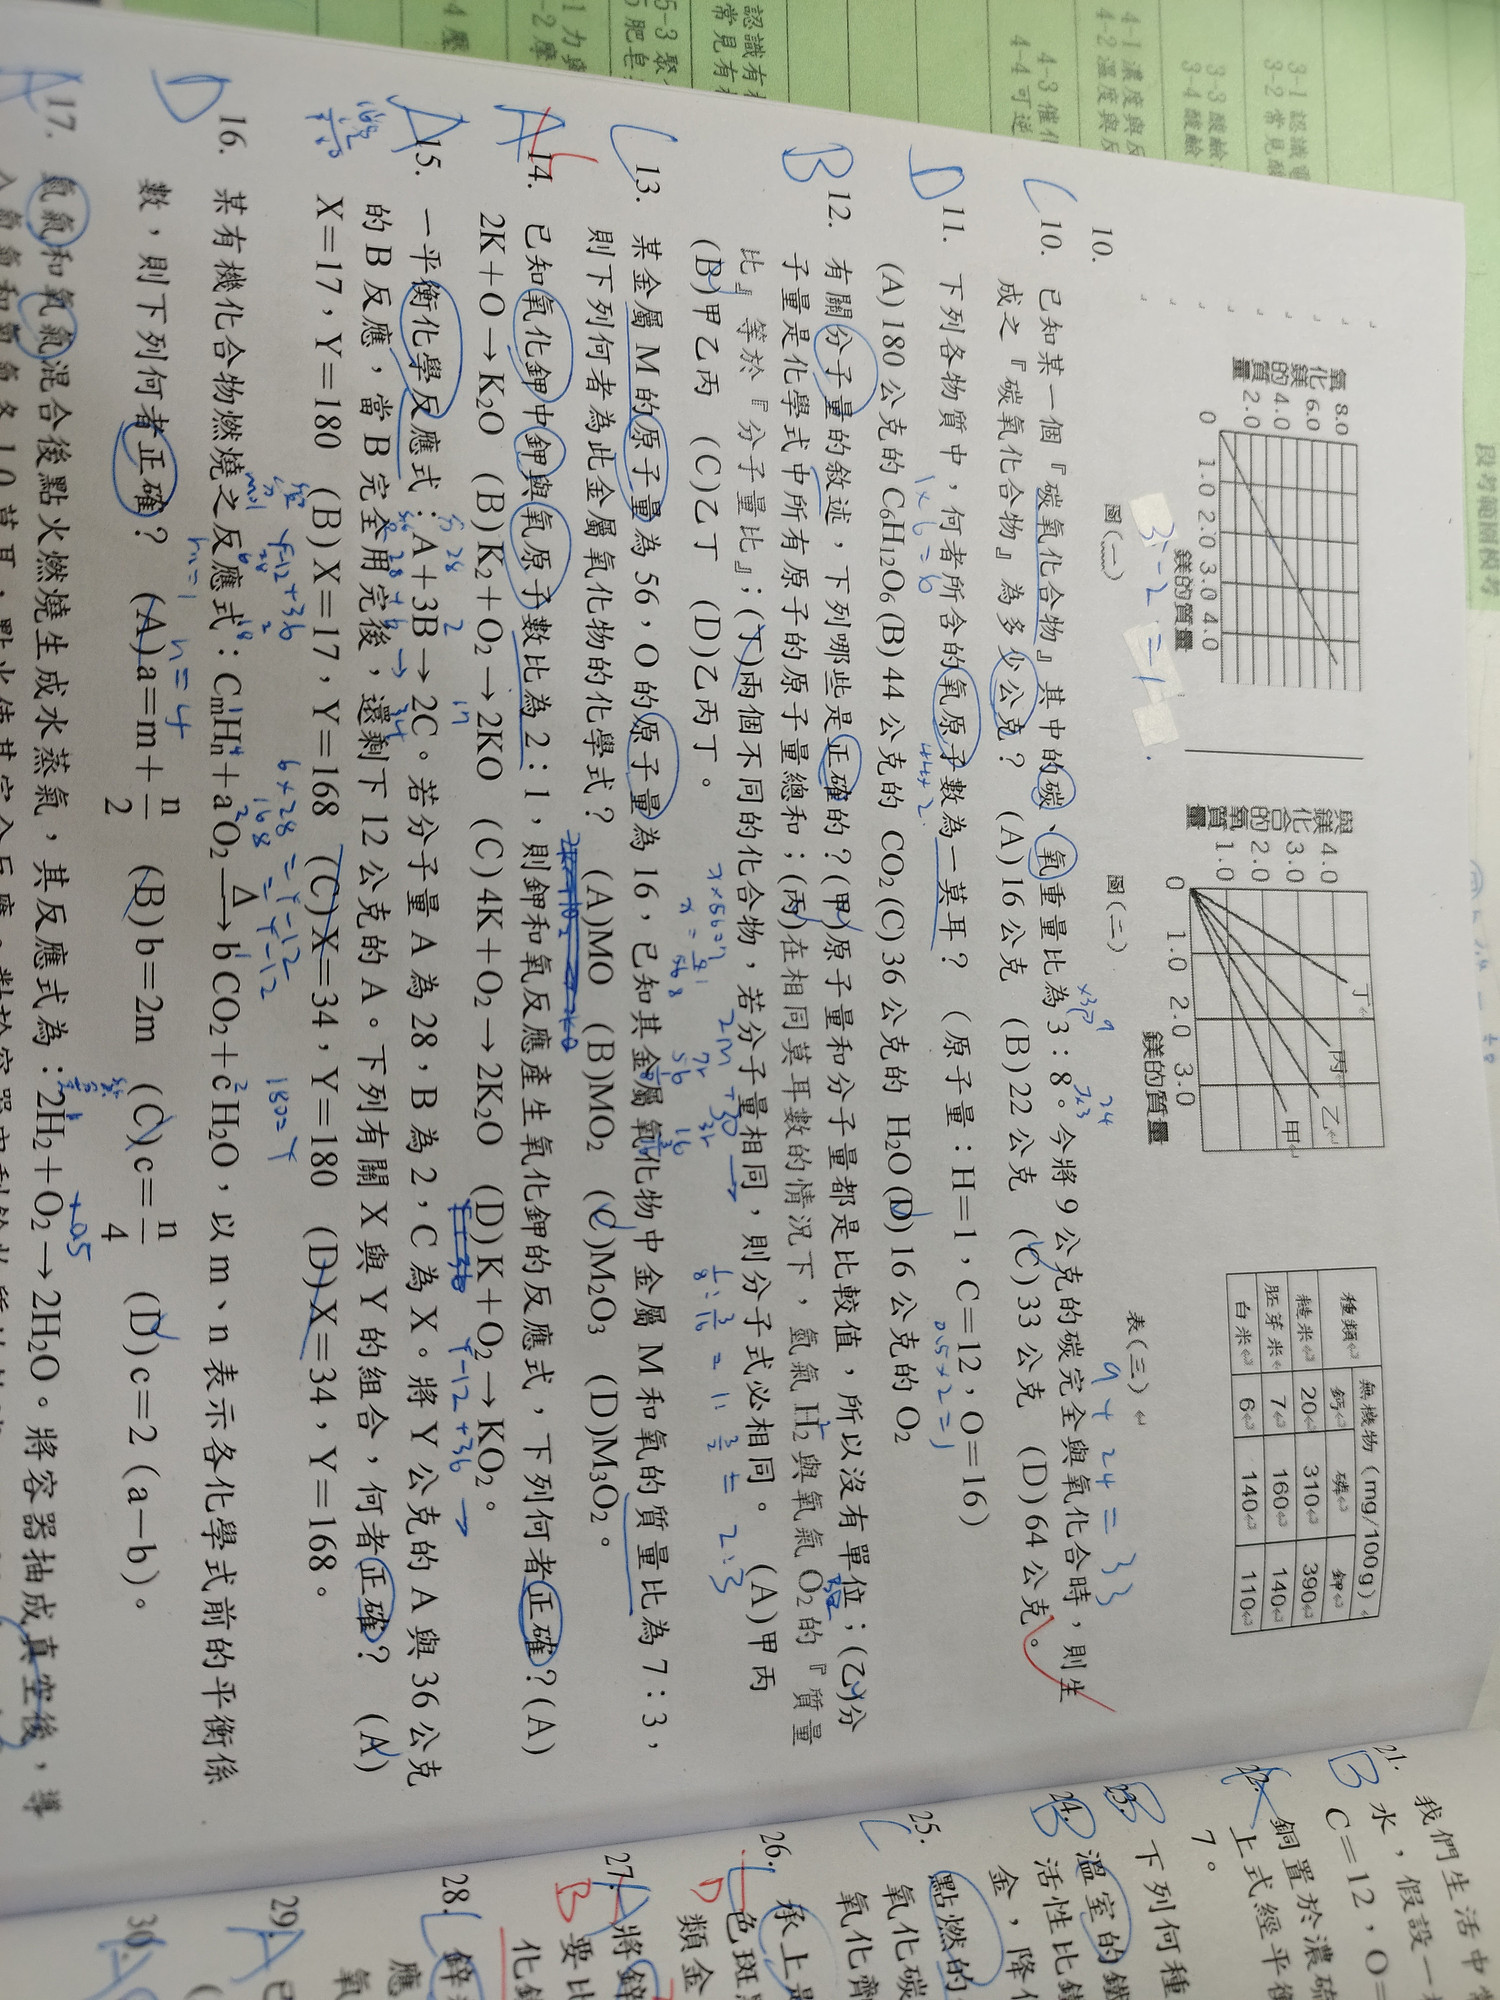 氧化鎂的質量
8.0
6.0
4.0
2.0
0
1.0 2.0 3.0 4.0
鎂的質量
圖(一)
與鎂化合的氧質量
4.0
3.0
2.0
1.0
0
1.0 2.0 3.0
鎂的質量
丁
丙
乙
甲
圖(二)
種類 無機物(mg/100g)
鈣 磷 鉀
糙米 20 310 390
胚芽米 7 160 140
白米 6 140 110
表(三)
3-2=1
10.
C
10. 已知某一個『碳氧化合物』其中的碳、氧重量比為 3:8。今將 9 公克的碳完全與氧化合時,則生
成之『碳氧化合物』為多少公克? (A)16 公克 (B)22 公克 (C)33 公克 (D)64 公克。
9+24=33
D
11. 下列各物質中,何者所含的氧原子數為一莫耳? (原子量:H=1,C=12,O=16)
(A)180 公克的 C₆H₁₂O₆(B)44 公克的 CO₂(C)36 公克的 H₂O(D)16 公克的 O₂
1×6=6
0.5×2=1
B
12. 有關分子量的敘述,下列哪些是正確的?(甲)原子量和分子量都是比較值,所以沒有單位;(乙)分
子量是化學式中所有原子的原子量總和;(丙)在相同莫耳數的情況下,氫氣 H₂與氧氣 O₂的『質量
比』等於『分子量比』;(丁)兩個不同的化合物,若分子量相同,則分子式必相同。 (A)甲丙
(B)甲乙丙 (C)乙丁 (D)乙丙丁。
C
13. 某金屬 M 的原子量為 56,O 的原子量為 16,已知其金屬氧化物中金屬 M 和氧的質量比為 7:3,
則下列何者為此金屬氧化物的化學式? (A)MO (B)MO₂ (C)M₂O₃ (D)M₃O₂。
A
14. 已知氧化鉀中鉀與氧原子數比為 2:1,則鉀和氧反應產生氧化鉀的反應式,下列何者正確?(A)
2K+O→K₂O (B)K₂+O₂→2KO (C)4K+O₂→2K₂O (D)K+O₂→KO₂。
A
15. 一平衡化學反應式:A+3B→2C。若分子量 A 為 28,B 為 2,C 為 X。將 Y 公克的 A 與 36 公克
的 B 反應,當 B 完全用完後,還剩下 12 公克的 A。下列有關 X 與 Y 的組合,何者正確? (A)
X=17,Y=180 (B)X=17,Y=168 (C)X=34,Y=180 (D)X=34,Y=168。
6×28=Y-12
168=Y-12
180=Y
D
16. 某有機化合物燃燒之反應式:CmHn+aO₂ →Δ bCO₂+cH₂O,以 m、n 表示各化學式前的平衡係
數,則下列何者正確? (A)a=m+n/2 (B)b=2m (C)c=n/4 (D)c=2(a-b)。
n=4
m=1
A
17. 氫氣和氧氣混合後點火燃燒生成水蒸氣,其反應式為:2H₂+O₂→2H₂O。將容器抽成真空後,導
21. 我們生活中
B
水,假設一
C=12,O=
22. 銅置於濃硫
上式經平衡
7。
23. 下列何種
B
24. 溫室的
B
活性比
金,降
25. 點燃的
C
氧化碳
氧化劑
26. 承上
D
色斑
類金
27. 將鋅
A
B
要比
28. 鋅
應
氧
29. 已
A
30.
3-2 常見
3-3 酸鹼
3-4 酸鹼
4-1 濃度與反
4-2 溫度與反
4-3 催化
4-4 可逆
認識有
常見有
5-3 聚